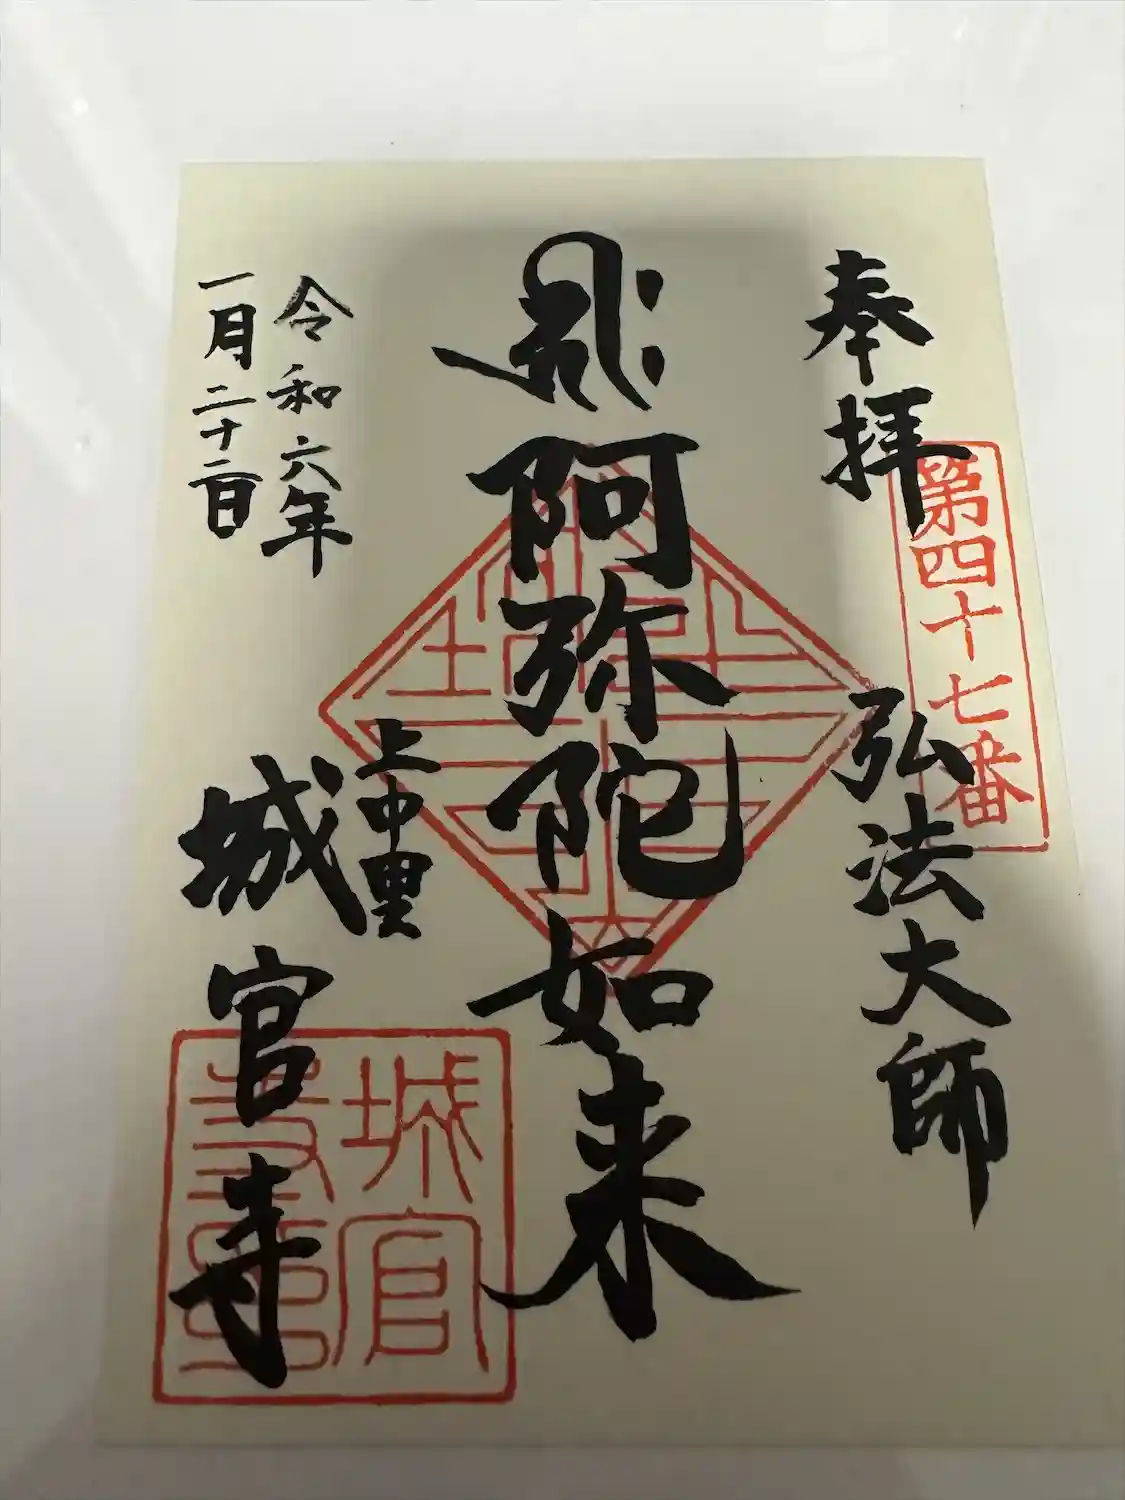 奉拝
第四十七番
弘法大師
阿弥陀如来
上中里
城官寺
城官
寺印
令和六年
一月二十二日